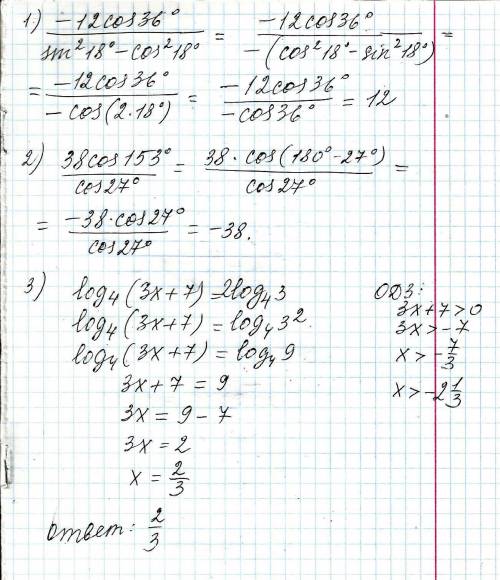 1) \frac{-12cos36°}{sin²18°-cos²18°} = \frac{-12cos36°}{-(cos²18°-sin²18°)} =
= \frac{-12cos36°}{-cos(2·18°)} = \frac{-12cos36°}{-cos36°} = 12
2) \frac{38cos153°}{cos27°} = \frac{38·cos(180°-27°)}{cos27°} =
= \frac{-38·cos27°}{cos27°} = -38.
3) log₄(3x+7)=2log₄3
log₄(3x+7)=log₄3²
log₄(3x+7)=log₄9
3x+7=9
3x=9-7
3x=2
x=\frac{2}{3}
ОДЗ:
3x+7>0
3x>-7
x>-\frac{7}{3}
x>-2\frac{1}{3}
ответ: \frac{2}{3}